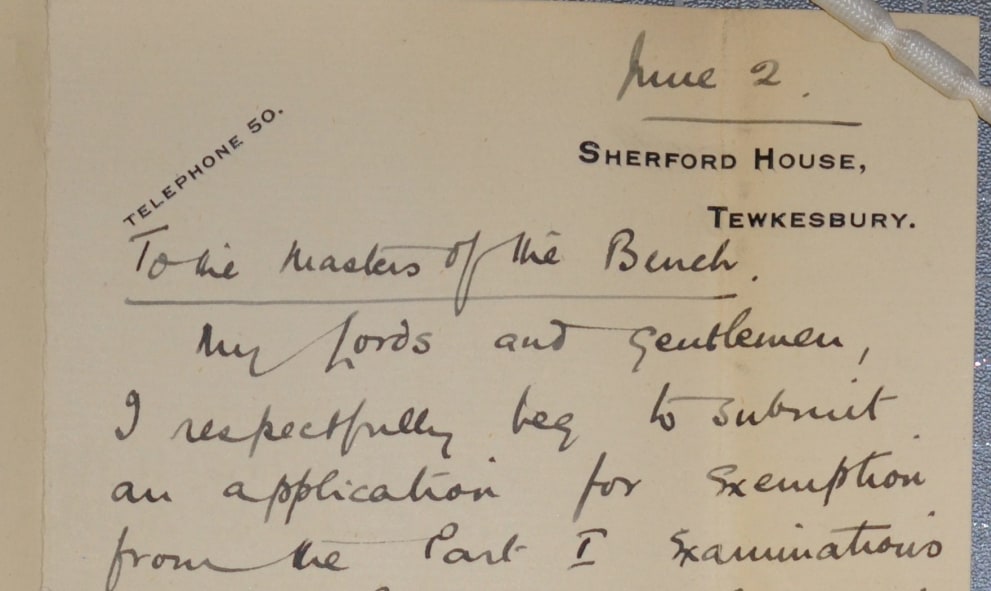 June 2.
TELEPHONE 50.
SHERFORD HOUSE,
TEWKESBURY.
To the Masters of the Bench.
My Lords and Gentlemen,
I respectfully beg to submit
an application for exemption
from the Part I Examinations